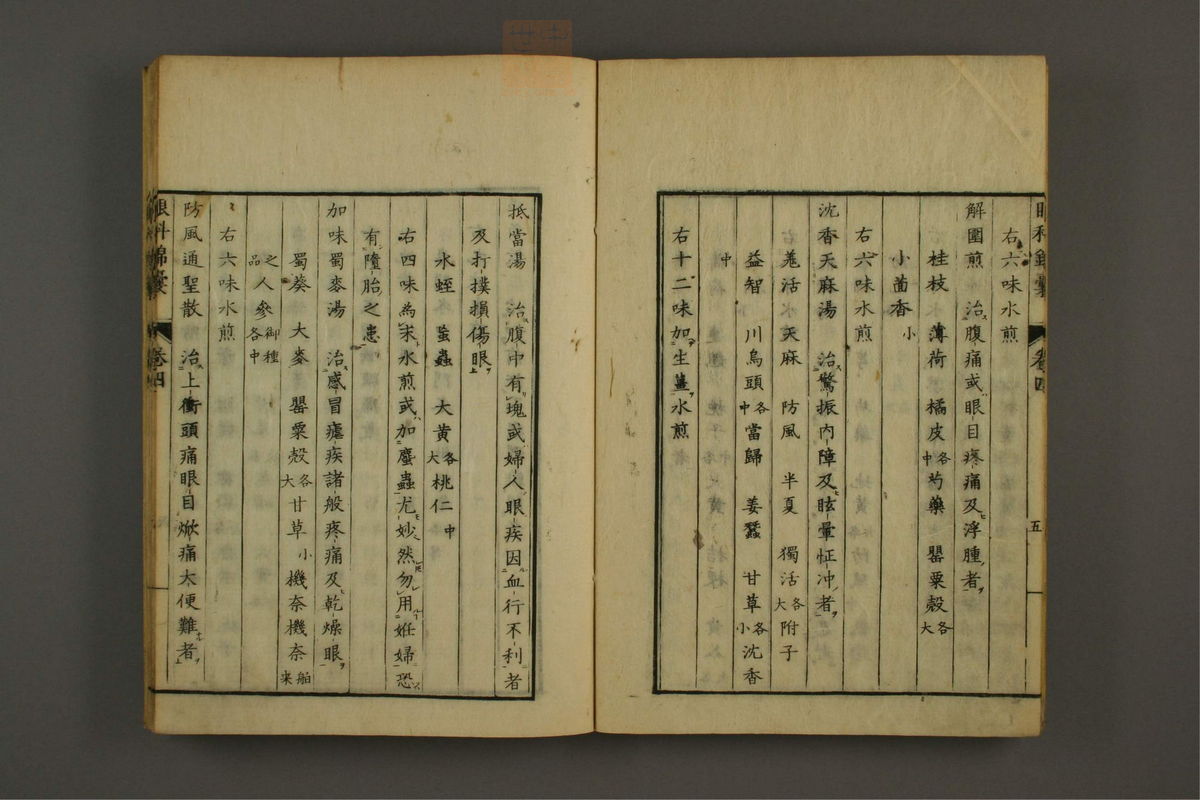 右六味水煎
解圍煎　治腹痛或眼目疼痛及浮腫者
桂枝　薄荷　橘皮各中芍藥　罌粟殼各大
小茴香小
右六味水煎
沈香天麻湯　治驚振内障及眩暈怔冲者
羗活　天麻　防風　半夏　獨活各大附子
益智　川烏頭各中當歸　姜蠶　甘草各小沈香
中
右十二味加生薑水煎
五
卷四
抵當湯　治腹中有塊或婦人眼疾因血行不利者
及打撲損傷眼
水蛭　䖟蟲　大黃各大桃仁中
右四味為末水煎或加䗪蟲尤妙然勿用妊婦恐
有墮胎之患
加味蜀麥湯　治感冒瘧疾諸般疼痛及乾燥眼
蜀葵　大麥　罌粟殼各大甘草小機奈機奈舶来
之品人參御種各中
右六味水煎
防風通聖散　治上衝頭痛眼目焮痛大便難者
眼科錦囊
卷四